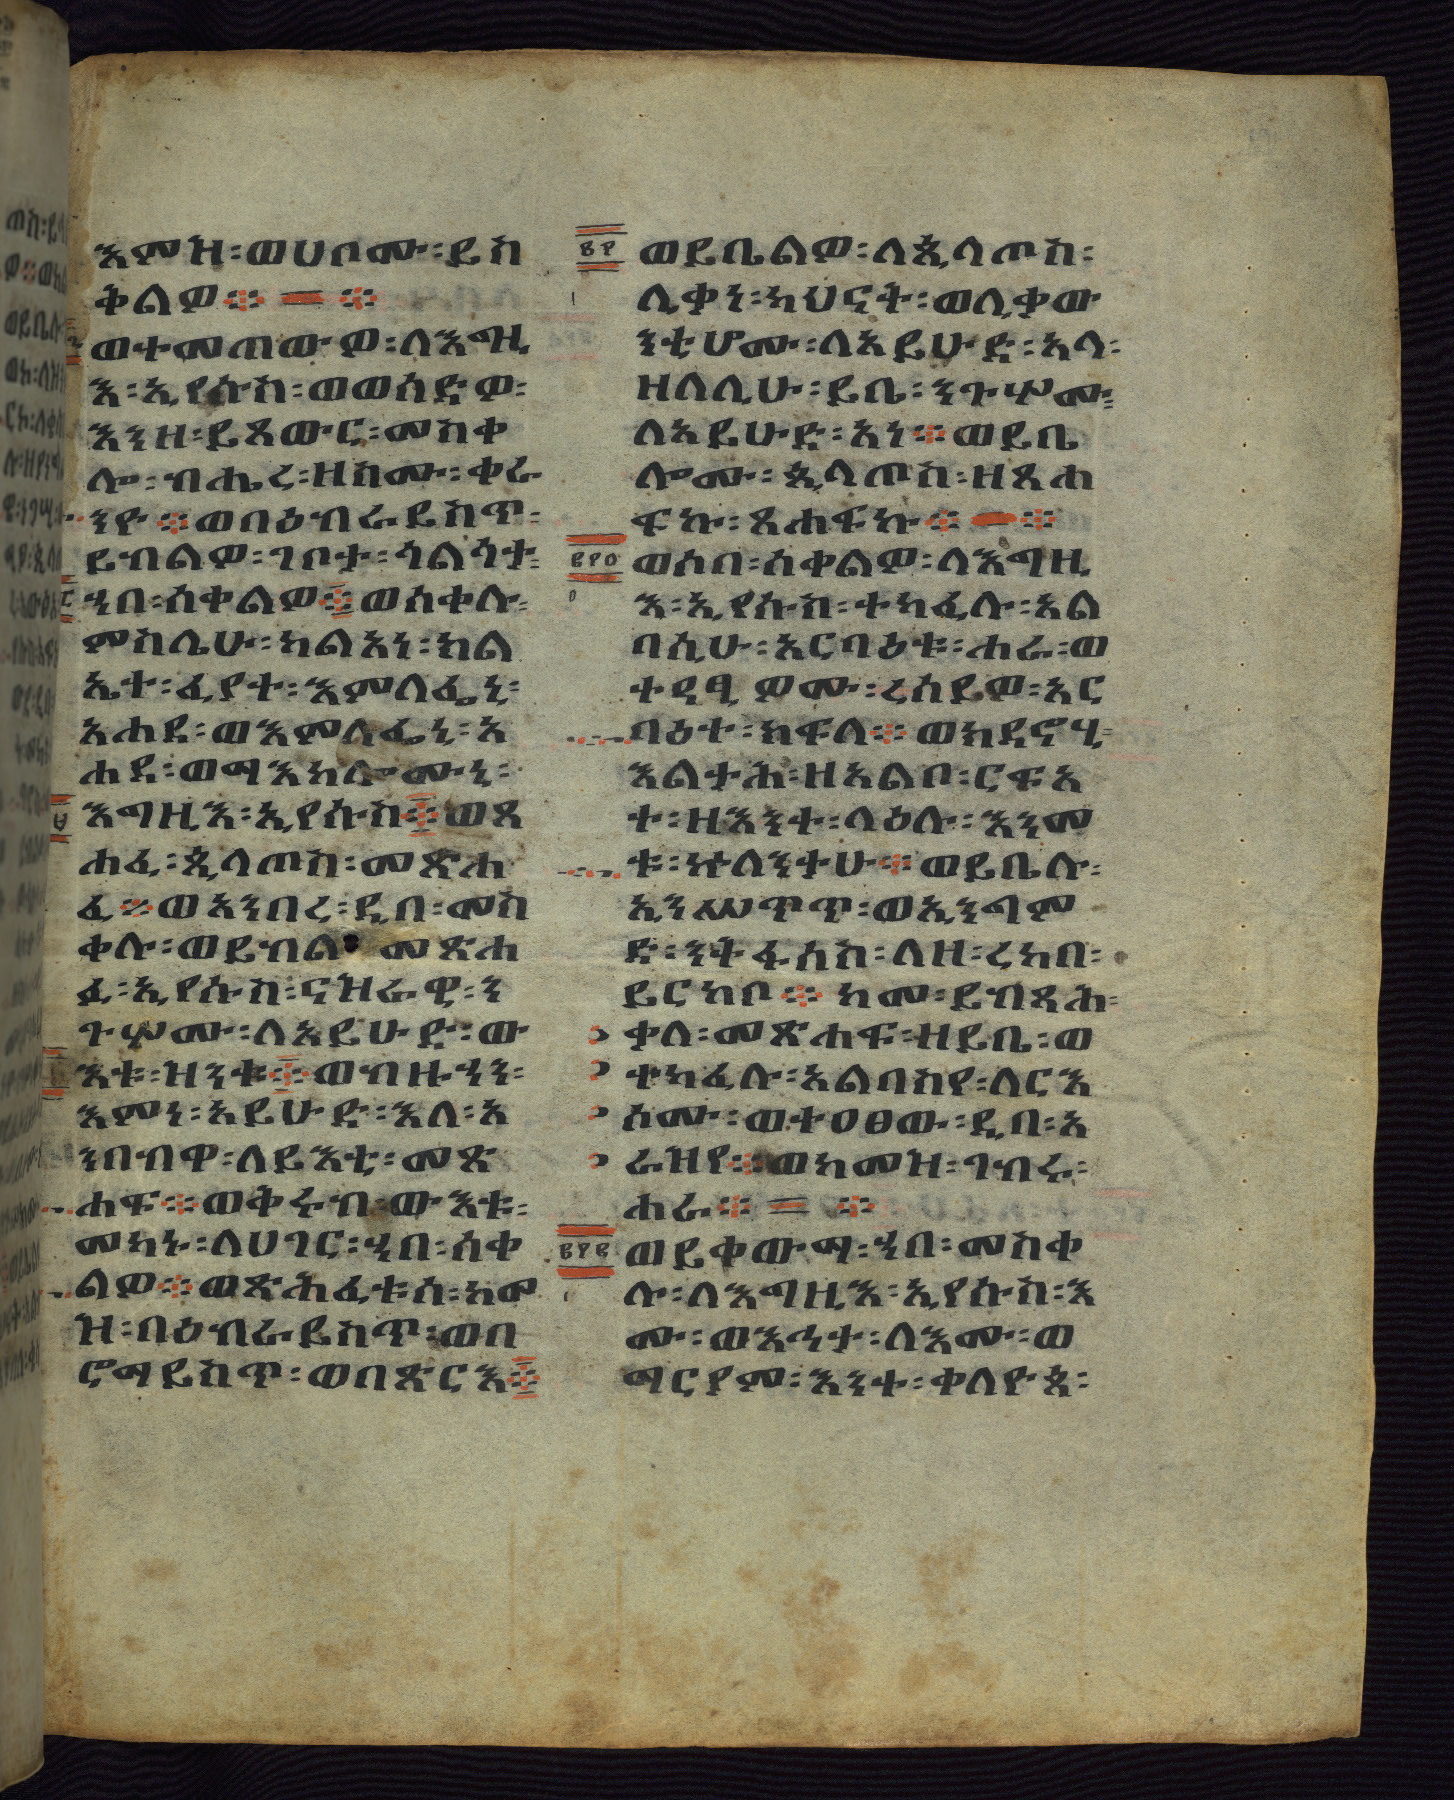 እምዝ፡ወሀቦሙ፡ይስ
ቅልዎ፨ = ፨
ወተመጠውዎ፡ለእግዚ
እ፡ኢየሱስ፡ወወሰድዎ፡
እንዘ፡ይጸውር፡መስቀ
ሎ፡ብሔረ፡ዘስሙ፡ቀራ
ንዮ፨ወበዕብራይስጥ፡
ይብልዎ፡ገቦታ፡ጎልጎታ፡
ኀበ፡ሰቀልዎ፨ወሰቀሉ፡
ምስሌሁ፡ካልእነ፡ክል
ኤተ፡ፈያተ፡እምለፌኒ፡
አሐደ፡ወእምለፌኒ፡አ
ሐደ፡ወማእከሎሙኒ፡
እግዚእ፡ኢየሱስ፨ወጸ
ሐፈ፡ጲላጦስ፡መጽሐ
ፈ፨ወአንበረ፡ዲበ፡መስ
ቀሉ፡ወይብል፡መጽሐ
ፈ፡ኢየሱስ፡ናዝራዊ፡ን
ጉሦሙ፡ለአይሁድ፡ው
እቱ፡ዝንቱ፨ወብዙኃን፡
እምነ፡አይሁድ፡እለ፡አ
ንበብዋ፡ለይእቲ፡መጽ
ሐፍ፨ወቅሩብ፡ውእቱ፡
መካኑ፡ለሀገር፡ኀበ፡ሰቀ
ልዎ፨ወጽሕፈቱሰ፡ከመ
ዝ፡በዕብራይስጥ፡ወበ
ሮማይስጥ፡ወበጽርእ፨
ወይቤልዎ፡ለጲላጦስ፡
ሊቃነ፡ካህናት፡ወሊቃው
ንቲሆሙ፡ለአይሁድ፡አላ፡
ዘለሊሁ፡ይቤ፡ንጉሦሙ፡
ለአይሁድ፡አነ፨ወይቤ
ሎሙ፡ጲላጦስ፡ዘጸሐ
ፍኩ፡ጸሐፍኩ፨ = ፨
ወሰበ፡ሰቀልዎ፡ለእግዚ
እ፡ኢየሱስ፡ተካፈሉ፡አል
ባሲሁ፡አርባዕቱ፡ሐራ፡ወ
ተዓፂዎሙ፡ረሰይዎ፡አር
ባዕተ፡ክፍለ፨ወክዳኖሂ፡
እልታሕ፡ዘአልቦ፡ርፍአ
ተ፡ዘእንተ፡ላዕሉ፡እንመ
ቱ፡ኵለንታሁ፨ወይቤሉ፡
ኢንሤጥጥ፡ወኢንግም
ድ፡ንትፋሰስ፡ለዘ፡ረከበ፡
ይርከቦ፨ከመ፡ይብጻሕ፡
ቃለ፡መጽሐፍ፡ዘይቤ፡ወ
ተካፈሉ፡አልባስየ፡ለርእ
ሶሙ፡ወተዐፀው፡ዲበ፡አ
ራዝየ፨ወከመዝ፡ገብሩ፡
ሐራ፨ = ፨
ወይቀውማ፡ኀበ፡መስቀ
ሉ፡ለእግዚእ፡ኢየሱስ፡እ
ሙ፡ወእኅተ፡ለእሙ፡ወ
ማርያም፡እንተ፡ቀለዮጳ፡